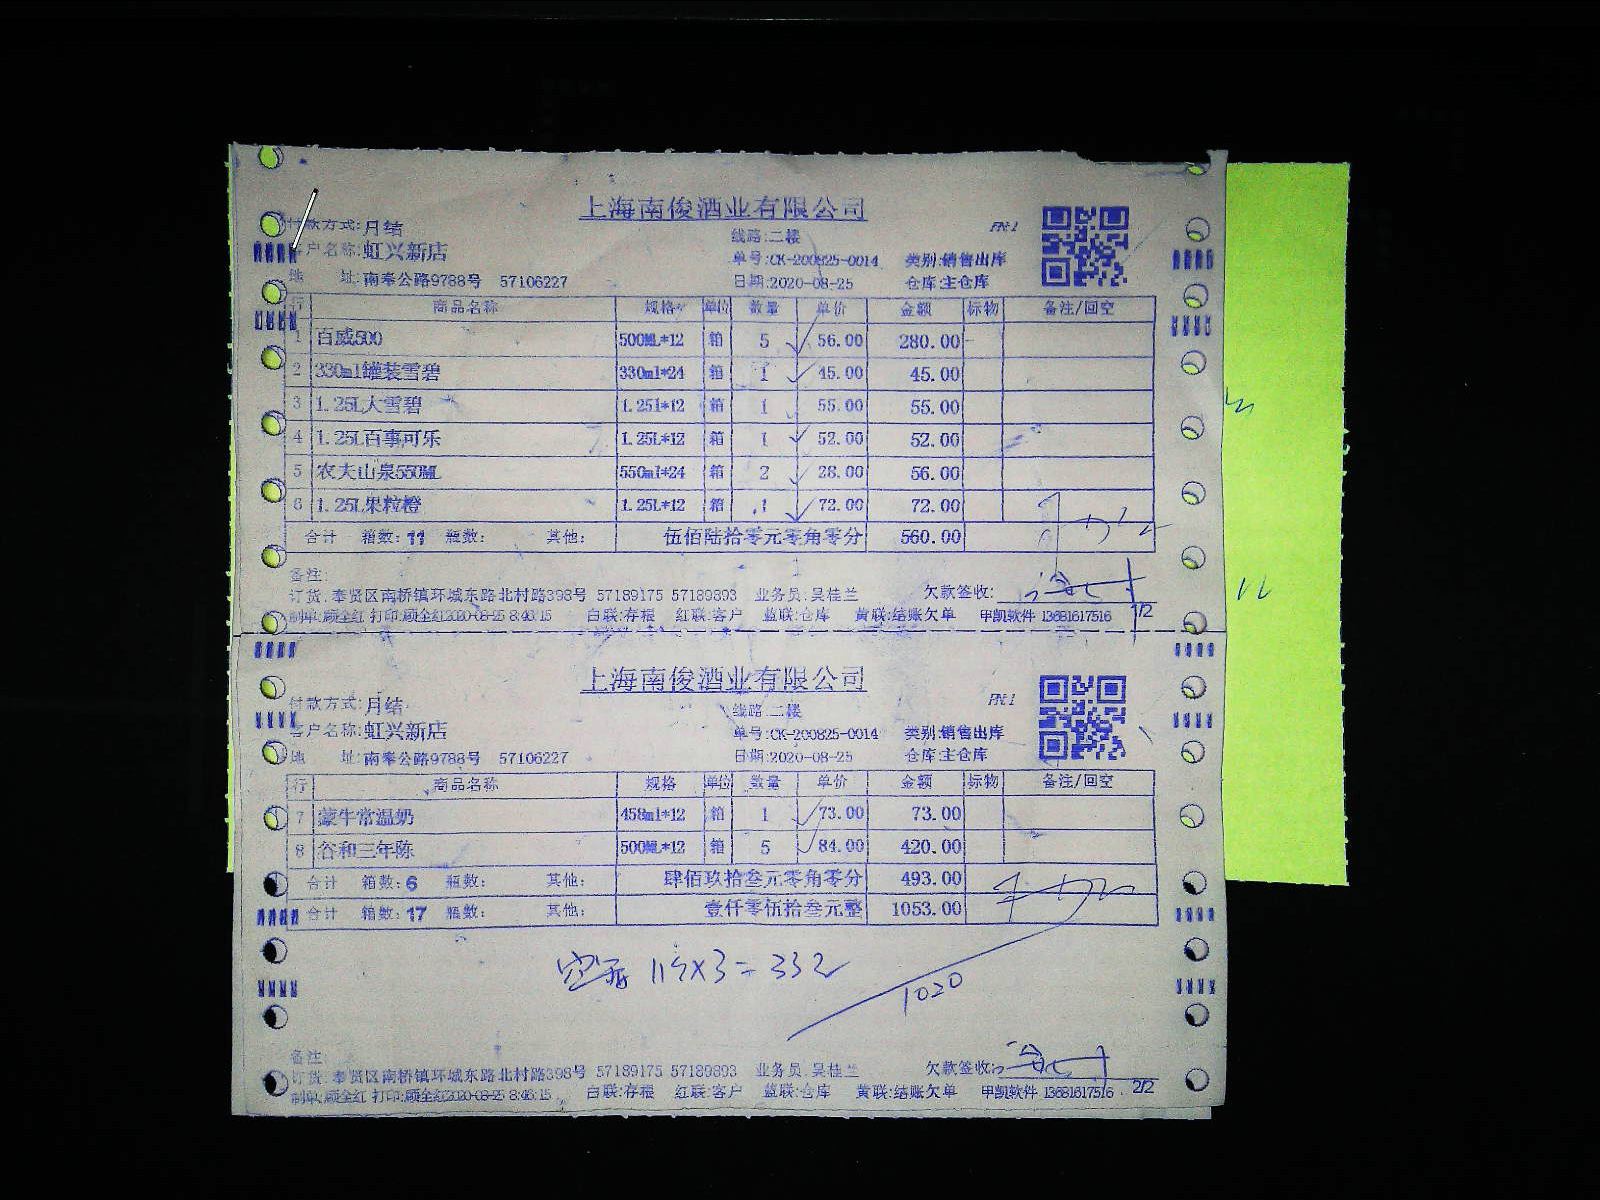 上海南俊酒业有限公司
付款方式:月结 线路:二楼
客户名称:虹兴新店 单号:CK-200825-0014 类别:销售出库
地 址:南奉公路9788号 57106227 日期:2020-08-25 仓库:主仓库
行 商品名称 规格 单位 数量 单价 金额 标物 备注/回空
1 百威500 500ML*12 箱 5 56.00 280.00
2 330ml罐装雪碧 330ml*24 箱 1 45.00 45.00
3 1.25L大雪碧 1.25l*12 箱 1 55.00 55.00
4 1.25L百事可乐 1.25L*12 箱 1 52.00 52.00
5 农夫山泉550ML 550ml*24 箱 2 28.00 56.00
6 1.25L果粒橙 1.25L*12 箱 1 72.00 72.00
合计 箱数:11 瓶数: 其他: 伍佰陆拾零元零角零分 560.00
备注:
订货:奉贤区南桥镇环城东路北村路398号 57189175 57189893 业务员:吴桂兰 欠款签收:
制单:顾全红 打印:顾全红2020-08-25 8:46:15 白联:存根 红联:客户 蓝联:仓库 黄联:结账欠单 甲凯软件 13681617516 1/2
上海南俊酒业有限公司
付款方式:月结 线路:二楼
客户名称:虹兴新店 单号:CK-200825-0014 类别:销售出库
地 址:南奉公路9788号 57106227 日期:2020-08-25 仓库:主仓库
行 商品名称 规格 单位 数量 单价 金额 标物 备注/回空
7 蒙牛常温奶 458ml*12 箱 1 73.00 73.00
8 谷和三年陈 500ML*12 箱 5 84.00 420.00
合计 箱数:6 瓶数: 其他: 肆佰玖拾叁元零角零分 493.00
合计 箱数:17 瓶数: 其他: 壹仟零伍拾叁元整 1053.00
1020
备注
订货:奉贤区南桥镇环城东路北村路398号 57189175 57189893 业务员:吴桂兰 欠款签收:
制单:顾全红 打印:顾全红2020-08-25 8:46:15 白联:存根 红联:客户 蓝联:仓库 黄联:结账欠单 甲凯软件 13681617516 2/2